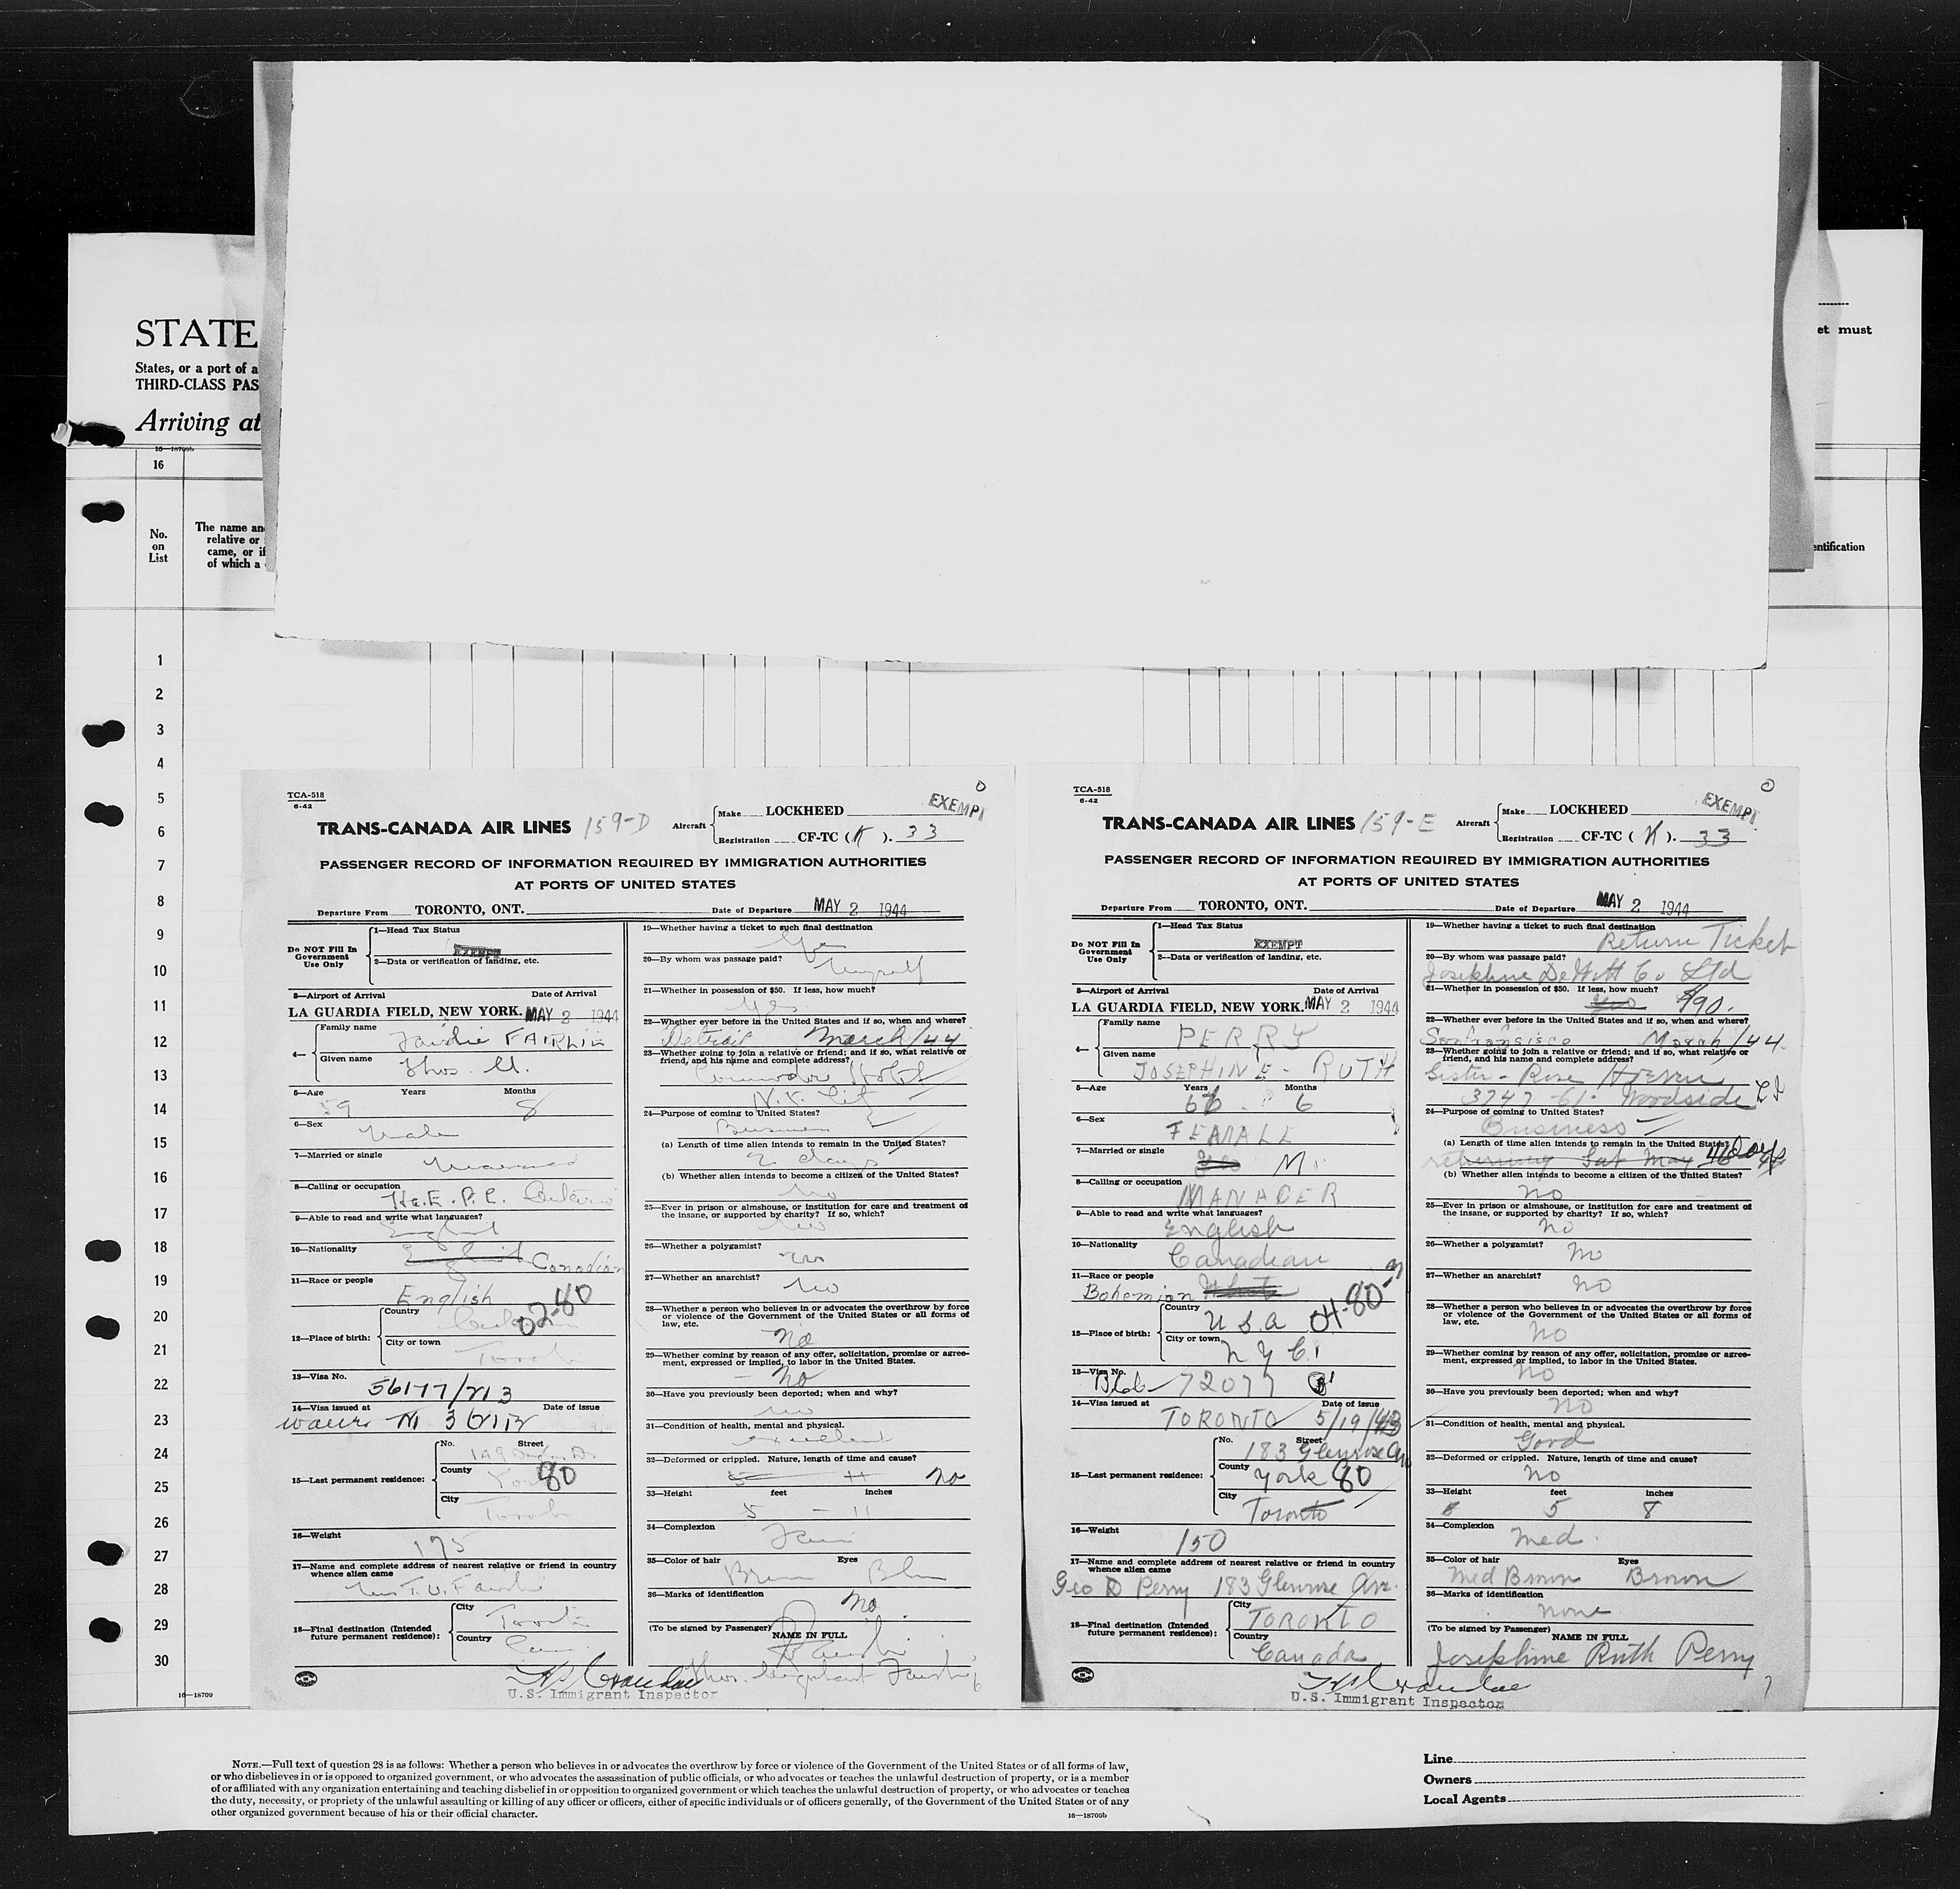 STATE
States, or a port of a
THIRD-CLASS PAS
Arriving at
et must
16—18709b
16
No.
on
List
The name an
relative or
came, or if
of which a
entification
1
2
3
4
5
6
7
8
9
10
11
12
13
14
15
16
17
18
19
20
21
22
23
24
25
26
27
28
29
30
16—18709
TCA-518
6-42
TRANS-CANADA AIR LINES 159-D
Aircraft
Make LOCKHEED
EXEMPT
Registration CF-TC (K). 33
PASSENGER RECORD OF INFORMATION REQUIRED BY IMMIGRATION AUTHORITIES
AT PORTS OF UNITED STATES
Departure From TORONTO, ONT. Date of Departure MAY 2 1944
Do NOT Fill In
Government
Use Only
1—Head Tax Status
EXEMPT
2—Data or verification of landing, etc.
3—Airport of Arrival Date of Arrival
LA GUARDIA FIELD, NEW YORK. MAY 2 1944
4—
Family name
Fairlie FAIRLIE
Given name
Thos. U.
5—Age Years Months
59 8
6—Sex
Male
7—Married or single
Married
8—Calling or occupation
H.E.P.C. Ontario
9—Able to read and write what languages?
English
10—Nationality
English Canadian
11—Race or people
English
02-80
12—Place of birth:
Country
City or town
Toronto
13—Visa No.
56177/213
14—Visa issued at Date of issue
15—Last permanent residence:
No. Street
149
County
York 80
City
Toronto
16—Weight
175
17—Name and complete address of nearest relative or friend in country
whence alien came
Mrs T. U. Fairlie
18—Final destination (Intended
future permanent residence):
City
Toronto
Country
Can
19—Whether having a ticket to such final destination
Yes
20—By whom was passage paid?
Myself
21—Whether in possession of $50. If less, how much?
Yes
22—Whether ever before in the United States and if so, when and where?
Detroit March/44
23—Whether going to join a relative or friend; and if so, what relative or
friend, and his name and complete address?
Commodore Hotel
N.Y. City
24—Purpose of coming to United States?
Business
(a) Length of time alien intends to remain in the United States?
2 days
(b) Whether alien intends to become a citizen of the United States?
No
25—Ever in prison or almshouse, or institution for care and treatment of
the insane, or supported by charity? If so, which?
No
26—Whether a polygamist?
No
27—Whether an anarchist?
No
28—Whether a person who believes in or advocates the overthrow by force
or violence of the Government of the United States or all forms of
law, etc.
No
29—Whether coming by reason of any offer, solicitation, promise or agree-
ment, expressed or implied, to labor in the United States.
No
30—Have you previously been deported; when and why?
No
31—Condition of health, mental and physical.
excellent
32—Deformed or crippled. Nature, length of time and cause?
5 11 No
33—Height feet inches
5 – 11
34—Complexion
Fair
35—Color of hair Eyes
Brown Blue
36—Marks of identification
No
(To be signed by Passenger) NAME IN FULL
U.S. Immigrant Inspector
6
TCA-518
6-42
TRANS-CANADA AIR LINES 159-E
Aircraft
Make LOCKHEED
EXEMPT
Registration CF-TC (K). 33
PASSENGER RECORD OF INFORMATION REQUIRED BY IMMIGRATION AUTHORITIES
AT PORTS OF UNITED STATES
Departure From TORONTO, ONT. Date of Departure MAY 2 1944
Do NOT Fill In
Government
Use Only
1—Head Tax Status
EXEMPT
2—Data or verification of landing, etc.
3—Airport of Arrival Date of Arrival
LA GUARDIA FIELD, NEW YORK. MAY 2 1944
4—
Family name
PERRY
Given name
JOSEPHINE - RUTH
5—Age Years Months
6
6—Sex
FEMALE
7—Married or single
Yes M
8—Calling or occupation
MANAGER
9—Able to read and write what languages?
English
10—Nationality
Canadian
11—Race or people
Bohemian White
04-80-3
12—Place of birth:
Country
U S A
City or town
N Y C.
13—Visa No.
72077
14—Visa issued at Date of issue
TORONTO 5/19/43
15—Last permanent residence:
No. Street
183 Glenrose Ave
County
York 80
City
Toronto
16—Weight
150
17—Name and complete address of nearest relative or friend in country
whence alien came
Geo D Perry 183 Glenrose Ave.
18—Final destination (Intended
future permanent residence):
City
TORONTO
Country
Canada
19—Whether having a ticket to such final destination
Return Ticket
20—By whom was passage paid?
Josephine DeWitt Co Ltd
21—Whether in possession of $50. If less, how much?
Yes $90.
22—Whether ever before in the United States and if so, when and where?
San Fransisco March/44
23—Whether going to join a relative or friend; and if so, what relative or
friend, and his name and complete address?
Sister - Rose
3747 - 61 - Woodside L I
24—Purpose of coming to United States?
Business
(a) Length of time alien intends to remain in the United States?
returning Sat May 4 Days
(b) Whether alien intends to become a citizen of the United States?
No
25—Ever in prison or almshouse, or institution for care and treatment of
the insane, or supported by charity? If so, which?
No
26—Whether a polygamist?
No
27—Whether an anarchist?
No
28—Whether a person who believes in or advocates the overthrow by force
or violence of the Government of the United States or all forms of
law, etc.
No
29—Whether coming by reason of any offer, solicitation, promise or agree-
ment, expressed or implied, to labor in the United States.
No
30—Have you previously been deported; when and why?
No
31—Condition of health, mental and physical.
Good
32—Deformed or crippled. Nature, length of time and cause?
No
33—Height feet inches
5 8
34—Complexion
Med.
35—Color of hair Eyes
Med Brown Brown
36—Marks of identification
None
(To be signed by Passenger) NAME IN FULL
Josephine Ruth Perry
U.S. Immigrant Inspector
7
NOTE.—Full text of question 28 is as follows: Whether a person who believes in or advocates the overthrow by force or violence of the Government of the United States or of all forms of law,
or who disbelieves in or is opposed to organized government, or who advocates the assassination of public officials, or who advocates or teaches the unlawful destruction of property, or is a member
of or affiliated with any organization entertaining and teaching disbelief in or opposition to organized government or which teaches the unlawful destruction of property, or who advocates or teaches
the duty, necessity, or propriety of the unlawful assaulting or killing of any officer or officers, either of specific individuals or of officers generally, of the Government of the United States or of any
other organized government because of his or their official character.
16—18709b
Line
Owners
Local Agents